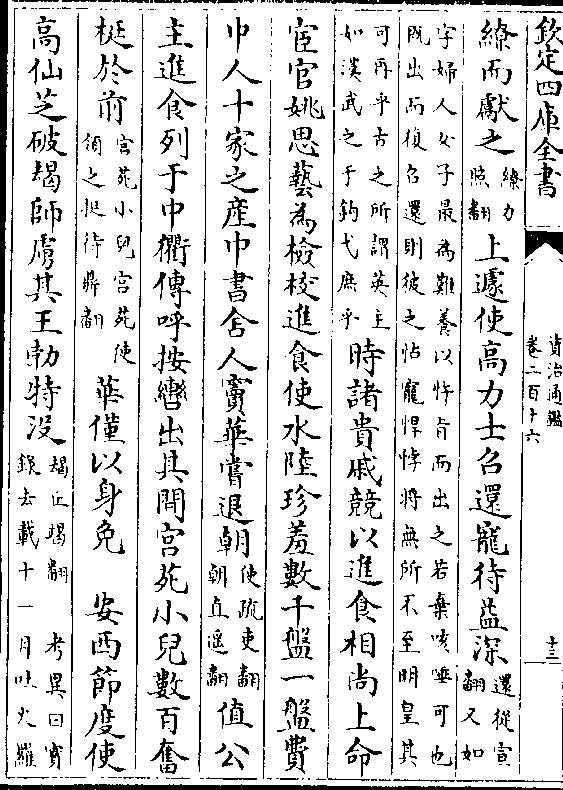 欽定四庫全書
資治通鑑
卷二百十六
十三
繚而獻之繚力照翻上遽使高力士召還寵待益深還從宣翻又如
字婦人女子最為難養以忤旨而出之若棄咳唾可也
既出而復召還則彼之怙寵悍悖將無所不至明皇其
可再乎古之所謂英主如漢武之于鉤弋庶乎時諸貴戚競以進食相尚上命
宦官姚思藝為檢校進食使水陸珍羞數千盤一盤費
中人十家之產中書舍人竇華嘗退朝使疏吏翻朝直遥翻值公
主進食列于中衢傳呼按轡出其間宮苑小兒數百奮
梃於前宮苑小兒宮苑使領之梃待鼎翻華僅以身免 安西節度使
高仙芝破朅師虜其王勃特没朅丘竭翻 考異曰實錄去載十一月吐火羅